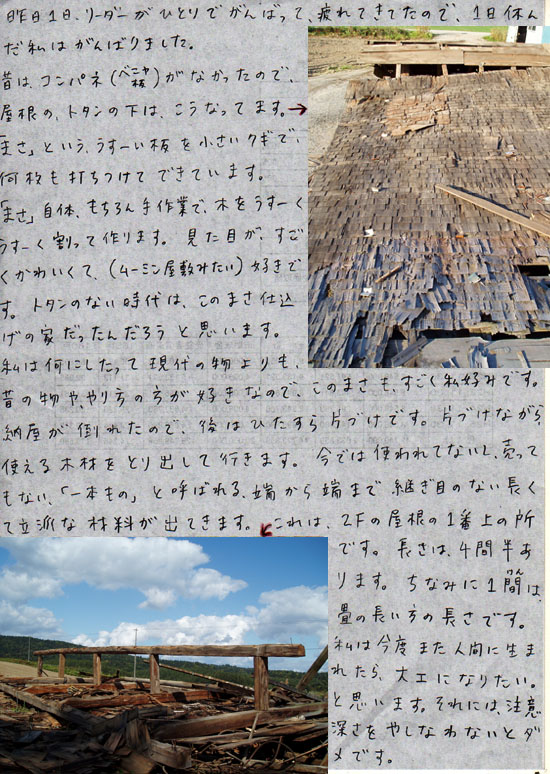 昨日1日、リーダーがひとりでがんばって、疲れてきてたので、1日休ん
だ私はがんばりました。
昔は、コンパネ(ベニヤ板)がなかったので、
屋根の、トタンの下は、こうなってます。→
「まさ」という、うすーい板を小さいクギで、
何枚も打ちつけてできています。
「まさ」自体、もちろん手作業で、木をうすーく
うすーく割って作ります。見た目が、すご
くかわいくて、(ムーミン屋敷みたい)好きで
す。トタンのない時代は、このまさ仕込
げの家だったんだろうと思います。
私は何にしたって現代の物よりも、
昔の物や、やり方の方が好きなので、このまさも、すごく私好みです。
納屋が倒れたので、後はひたすら片づけです。片づけながら、
使える木材をとり出して行きます。今では使われてないし、売って
もない、「一本もの」と呼ばれる、端から端まで継ぎ目のない長く
て立派な材料が出てきます。↙これは、2Fの屋根の1番上の所
です。長さは、4間半あ
ります。ちなみに1間(けん)は、
畳の長い方の長さです。
私は今度また人間に生ま
れたら、大工になりたい。
と思います。それには、注意
深さをやしなわないとダ
メです。